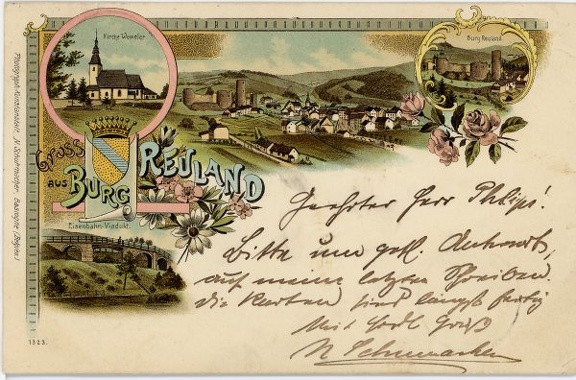 Kirche Weweler
Burg Reuland
Gruss
aus BURG REULAND
Eisenbahn-Viadukt.
1323.
Geehrter Herr Philips!
Bitte um gefl. Antwort,
auf mein letzten Schreiben.
Die Karten sind längst fertig
Mit Gruß
N Schumacher